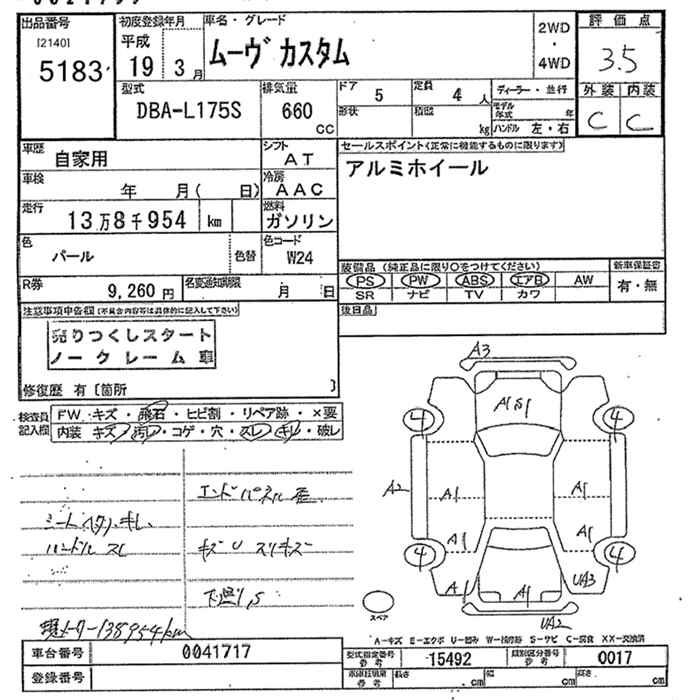 出品番号 初度登録年月 車名・グレード 2WD 評価点
[2140] 平成 ムーヴ カスタム ・ 3.5
5183 19 3月 4WD
型式 排気量 ドア 5 定員 4人 ディーラー・並行 外装 内装
DBA-L175S 660 CC 形状 積載 kg モデル年式 年 C C
ハンドル 左・右
車歴 自家用 シフト AT セールスポイント(正常に機能するものに限ります)
車検 年 月( 日) 冷房 AAC アルミホイール
走行 13万8千954 km 燃料 ガソリン
色 パール 色替 色コード W24
装備品 (純正品に限り○をつけてください) 新車保証書
R券 9,260円 名変通知期限 月 日 PS PW ABS エアB AW 有・無
SR ナビ TV カワ
注意事項申告欄(不具合内容等は具体的に記入して下さい) 後日品
売りつくしスタート
ノークレーム車
修復歴 有〔箇所 〕
検査員記入欄 FW キズ・飛石・ヒビ割・リペア跡・×要
内装 キズ・汚レ・コゲ・穴・スレ・キレ・破レ
エンドパネル歪
シートヘタリ、キレ
ハンドル スレ キズU スリキズ
下廻りS
現メーター138954km
A3
A1 S1
4 4
A2 A1 A1
A1 A1
4 4
A1 A1 UA3
スペア UA2
A-キズ E-エクボ U-凹み W-補修跡 S-サビ C-腐食 XX-交換済
車台番号 0041717 型式指定番号 参考 15492 類別区分番号 参考 0017
登録番号 車庫証明案 参考 長さ cm 幅 cm 高さ cm